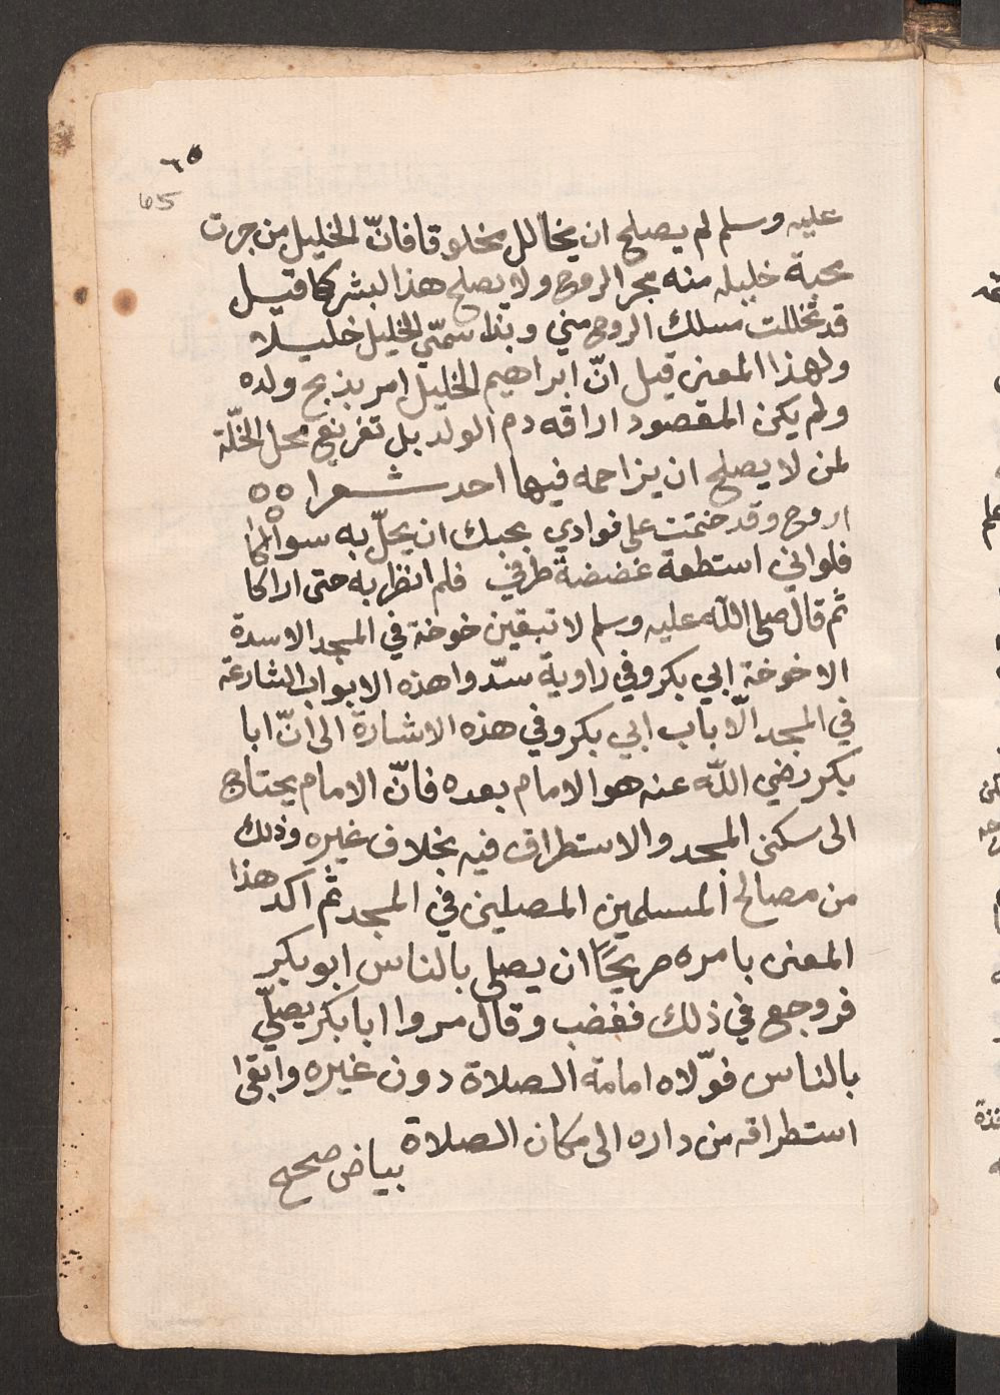 ٦٥
65
عليه وسلم لم يصلح ان يخالل مخلوقا فانّ الخليل من جرت
محبة خليله منه مجر الروح ولا يصلح هذا لبشر كما قيل
قد تخللت مسلك الروح مني وبذا سمّي الخليل خليلا
ولهذا المعنى قيل انّ ابراهيم الخليل امر بذبح ولده
ولم يكن المقصود اراقه دم الولد بل تفريغ محل الخلّة
لمن لا يصلح ان يزاحمه فيها احد شعرا ٥٥
اروح وقد ختمت على فوادي بحبك ان يحلّ به سواكا
فلو اني استطعة غضضة طرفي فلم انظر به حتى اراكا
ثم قال صلى الله عليه وسلم لا تبقين خوخة في المسجد الا سدة
الا خوخة ابي بكر وفي راوية سدّوا هذه الابواب الشارعة
في المسجد الّا باب ابي بكر وفي هذه الاشارة الى انّ ابا
بكر رضي اللّه عنه هو الامام بعده فانّ الامام يحتاج
الى سكنى المسجد والاستطراق فيه بخلاف غيره وذلك
من مصالح المسلمين المصلين في المسجد ثم اكد هذا
المعنى بامره صريحًا ان يصلي بالناس ابو بكر
فروجع في ذلك فغضب وقال مروا ابا بكر يصلّي
بالناس فوّلاه امامة الصلاة دون غيره وابقى
استطراقه من داره الى مكان الصلاة
بياض صحيح